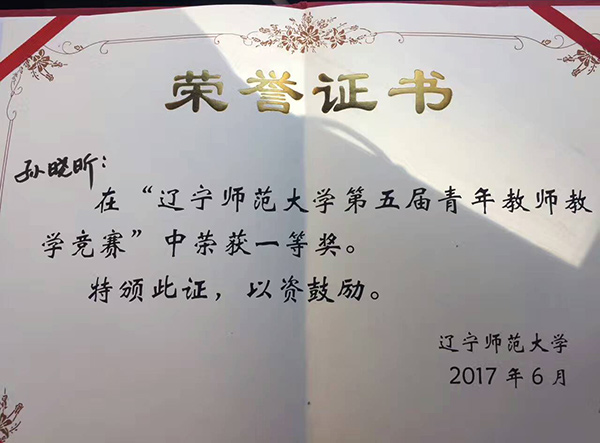 荣誉证书
孙晓昕：
在“辽宁师范大学第五届青年教师教
学竞赛”中荣获一等奖。
特颁此证，以资鼓励。
辽宁师范大学
2017年6月